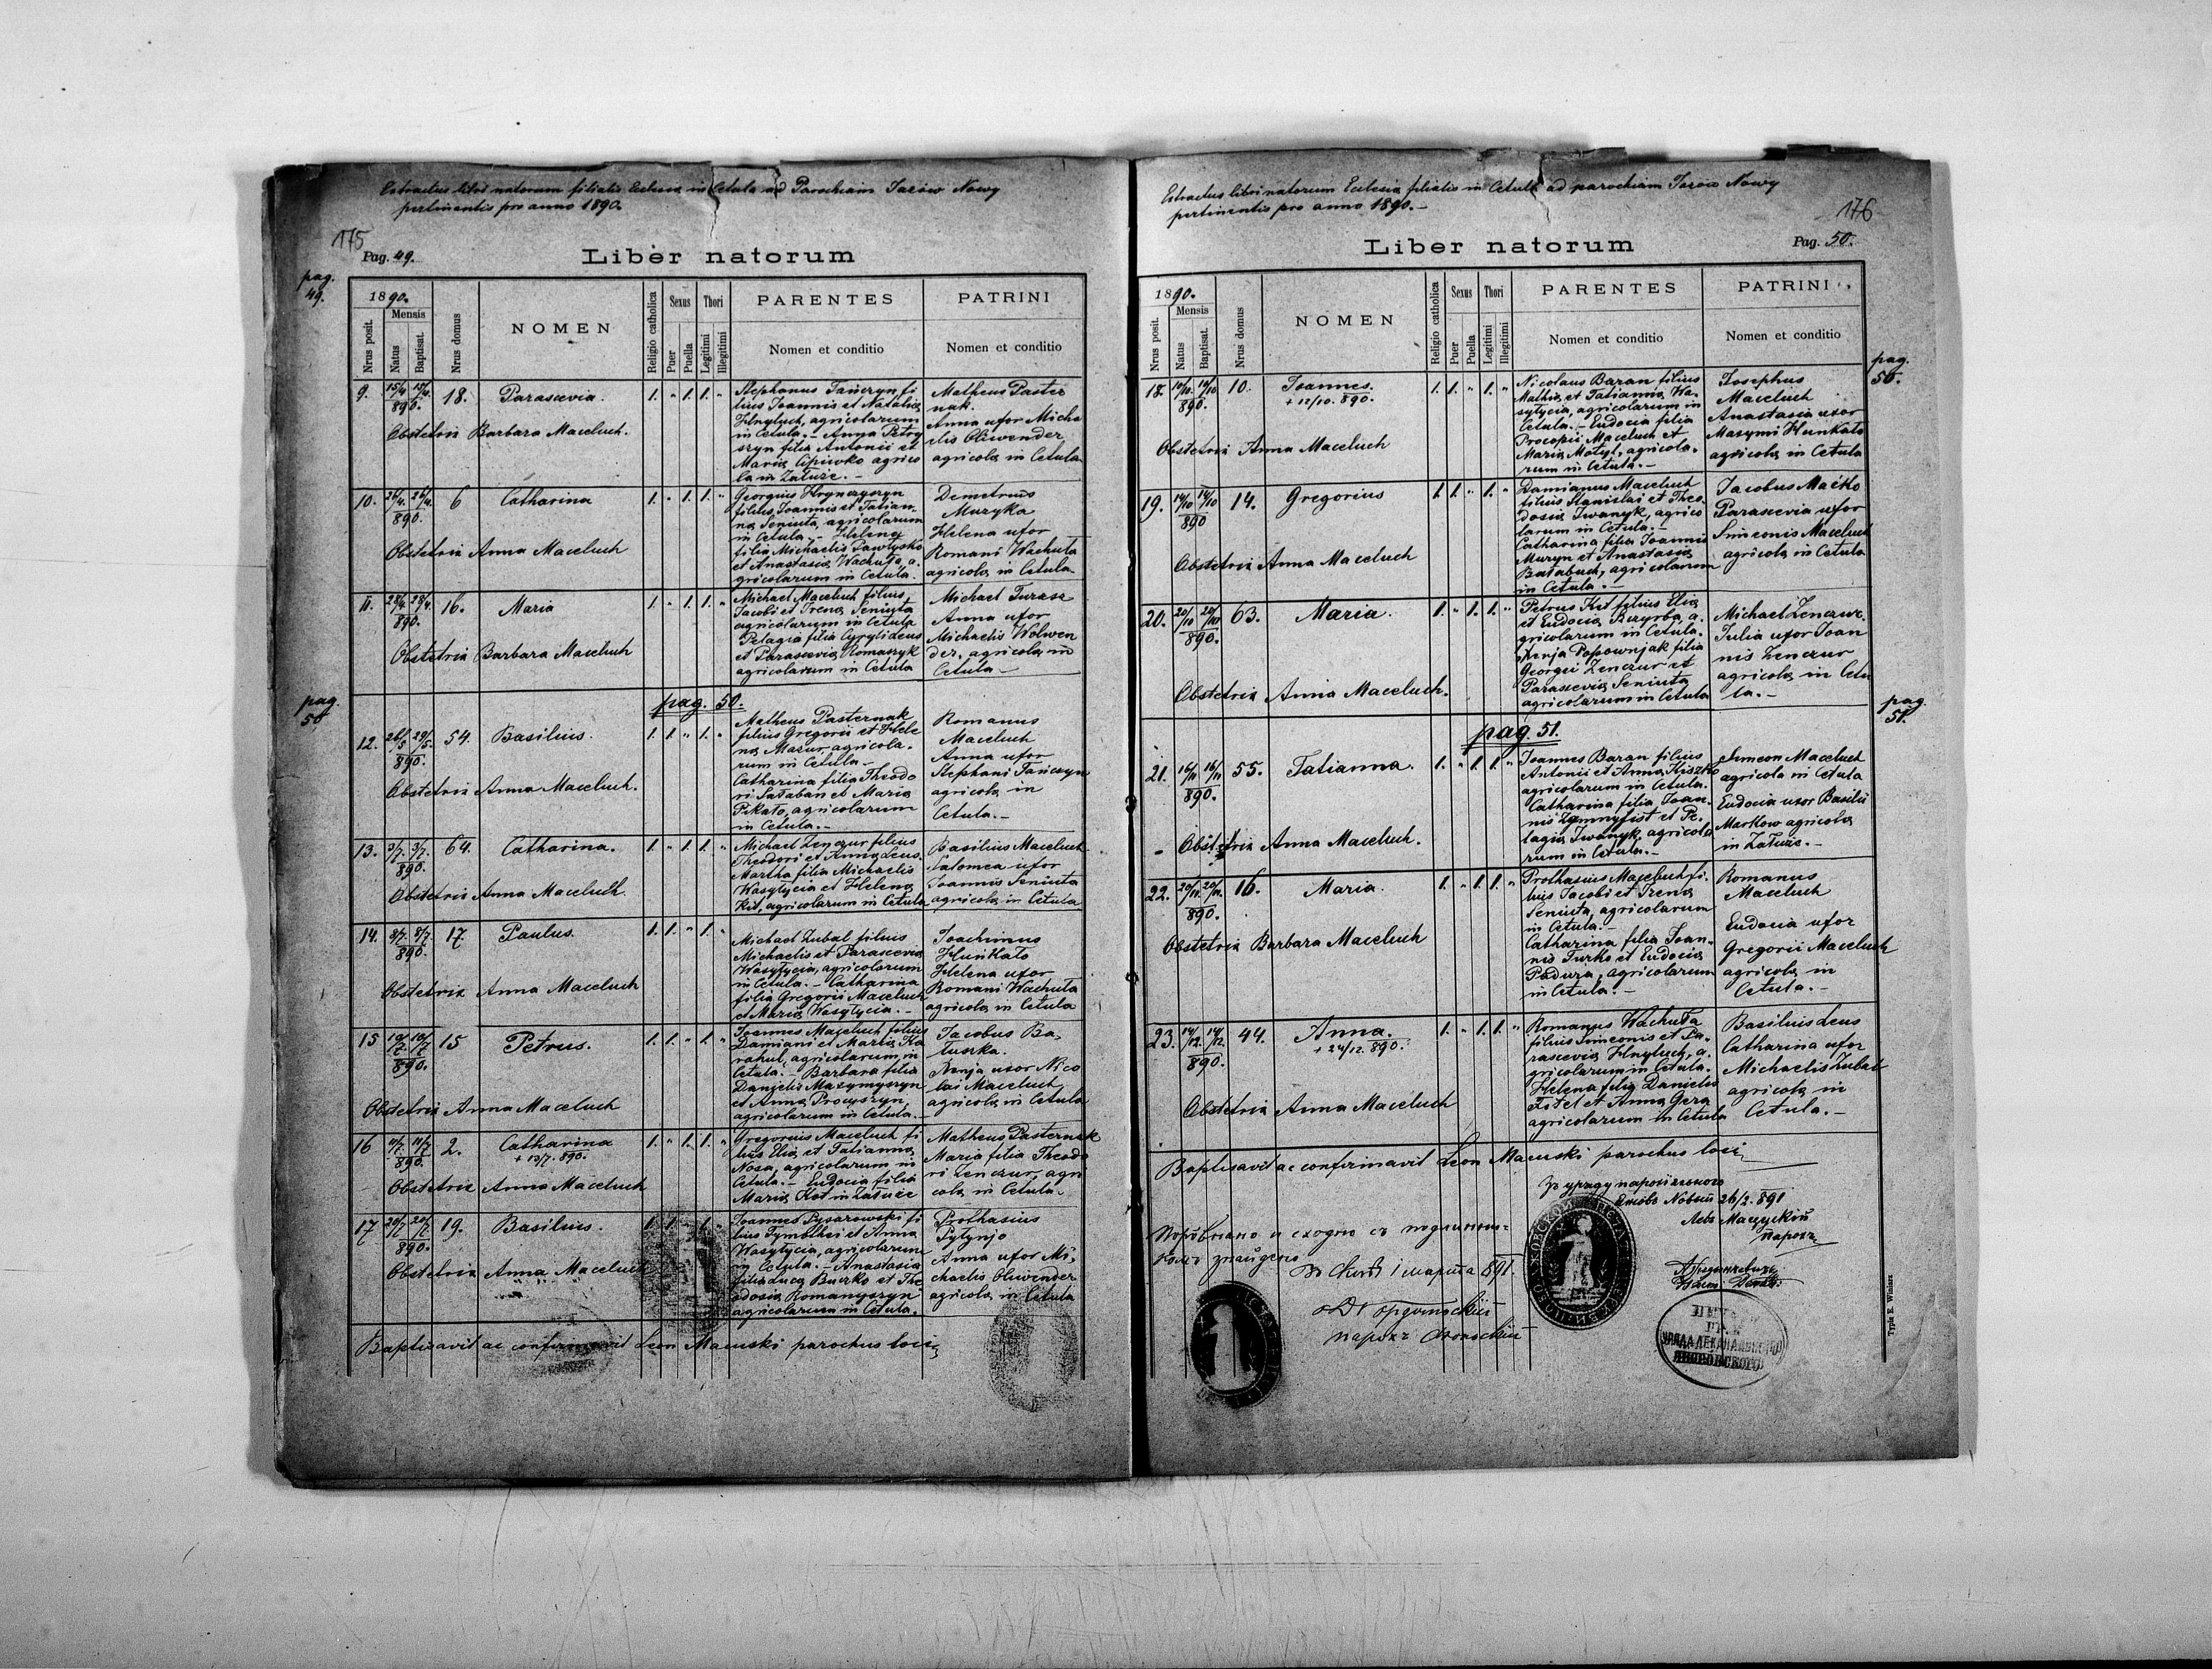 Extractus libri natorum filialis Ecclesiæ in Cetula ad Parochiam Jazów Nowy
pertinentis pro anno 1890.
175
Pag. 49.
Liber natorum
pag.
49.
1890.
Mensis
Nrus posit.
Natus
Baptisat.
Nrus domus
NOMEN
Religio catholica
Sexus
Puer
Puella
Thori
Legitimi
Illegitimi
PARENTES
Nomen et conditio
PATRINI
Nomen et conditio
9. 15/4 15/4. 890. 18. Parascevia. 1. " 1. 1. "
Obstetrix Barbara Maceluch.
Stephanus Tańczyn fi
lius Joannis et Nataliæ
Hnyluch, agricolarum
in Cetula. - Anna Petry
szyn filia Antonii et
Mariæ Cipiwko agrico
la in Załuże. -
Matheus Paster
nak.
Anna uxor Micha
elis Oliwender
agricolæ in Cetula
10. 26/4. 26/4. 890. 6 Catharina 1. " 1. 1. "
Obstetrix Anna Maceluch
Georgius Hrynczyszyn
filius Joannis et Tatian
næ Seniuta, agricolarum
in Cetula. - Helena
filia Michaelis Pawlysko
et Anastasiæ Wachuta, a.
gricolarum in Cetula.
Demetrius
Muzyka
Helena uxor
Romani Wachuta
agricolæ in Cetula
11. 28/4. 28/4. 890. 16. Maria 1. " 1. 1. "
Obstetrix Barbara Maceluch
Michael Maceluch filius
Jacobi et Irenæ Seniuta
agricolarum in Cetula
Pelagia filia Cyryli Leus
et Parasceviæ Romaszyk
agricolarum in Cetula
Michael Turasz
Anna uxor
Michaelis Wolwen
der, agricolæ in
Cetula -
pag.
50
pag. 50.
12. 26/5 29/5. 890. 54. Basilius. 1. 1. " 1. "
Obstetrix Anna Maceluch.
Matheus Pasternak
filius Gregorii et Hele
næ Mazur, agricola.
rum in Cetulla -
Catharina filia Theodo
ri Sałaban et Mariæ
Pikało, agricolarum
in Cetula. -
Romanus
Maceluch
Anna uxor
Stephani Tańczyn
agricolæ in
Cetula. -
13. 3/7. 3/7. 890. 64. Catharina. 1. " 1. 1. "
Obstetrix Anna Maceluch.
Michael Zenczur filius
Theodori et Annæ Leus.
Martha filia Michaelis
Wasyłycia et Helenæ
Kit, agricolarum in Cetula
Basilius Maceluch
Salomea uxor
Joannis Seniuta
agricolæ in Cetula
14. 8/7. 8/7. 890. 17. Paulus. 1. 1. " 1. "
Obstetrix Anna Maceluch
Michael Zubal filius
Michaelis et Parasceviæ
Wasyłycia, agricolarum
in Cetula. - Catharina
filia Gregorii Maceluch
et Mariæ Wasyłycia. -
Joachimus
Huńkało
Helena uxor
Romani Wachuta
agricolæ in Cetula
15 10/7. 10/7. 890. 15 Petrus. 1. 1. " 1. "
Obstetrix Anna Maceluch
Joannes Maceluch filius
Damiani et Martæ Ka
rahul, agricolarum, in
Cetula. - Barbara filia
Danielis Maxymyszyn
et Annæ Procyszyn,
agricolarum in Cetula. -
Jacobus Ba.
łuszka.
Xenja uxor Nico
lai Maceluch
agricolæ in Cetula
16 11/7. 11/7. 890. 2. Catharina 1. " 1. 1. "
+ 13/7. 890.
Obstetrix Anna Maceluch
Gregorius Maceluch fi
lius Eliæ et Tatiannæ
Nosa, agricolarum in
Cetula. - Eudocia filia
Mariæ Kot in Załuże
Matheus Pasternak
Maria filia Theodo
ri Zenczur, agri
colæ in Cetula.
17 20/7 20/7. 890. 19. Basilius. 1. 1. 1. "
Obstetrix Anna Maceluch
Joannes Pysarowski fi
lius Tymothei et Anna
Wasyłycia, agricolarum
in Cetula. - Anastasia
filia Lucæ Buczko et The
odosiæ Romanyszyn
agricolarum in Cetula.
Prothasius
Pyłynjo
Anna uxor Mi.
chaelis Oliwender
agricolæ in Cetula
Baptisavit ac confirmavit Leon Macuski parochus loci
Extractus libri natorum Ecclesiæ filialis in Cetula ad parochiam Jazów Nowy
pertinentis pro anno 1890. -
176
Liber natorum
Pag. 50.
1890.
Mensis
Nrus posit.
Natus
Baptisat.
Nrus domus
NOMEN
Religio catholica
Sexus
Puer
Puella
Thori
Legitimi
Illegitimi
PARENTES
Nomen et conditio
PATRINI
Nomen et conditio
pag.
50.
18. 10/10. 10/10 890. 10. Joannes. 1. 1. " 1. "
+ 12/10. 890.
Obstetrix Anna Maceluch
Nicolaus Baran filius
Mathiæ et Tatiannæ Wa.
syłycia, agricolarum in
Cetula. - Eudocia filia
Procopii Maceluch et
Mariæ Motyl, agricola.
rum in Cetula. -
Josephus
Maceluch
Anastasia uxor
Maxymi Hunkało
agricolæ in Cetula
19. 14/10 14/10 890 14. Gregorius 1. 1. " 1. "
Obstetrix Anna Maceluch
Damianus Maceluch
filius Stanislai et Theo.
dosiæ Iwanyk, agrico
larum in Cetula. -
Catharina filia Joannis
Muzyn et Anastasiæ
Bałabuch, agricolarum
in Cetula. -
Jacobus Maćko
Parascevia uxor
Simeonis Maceluch
agricolæ in Cetula
20. 20/10 20/10 890. 63. Maria. 1. " 1. 1. "
Obstetrix Anna Maceluch.
Petrus Kit filius Eliæ
et Eudociæ Bezyrba, a.
gricolarum in Cetula.
Xenja Popownjak filia
Georgii Zenczur et
Parasceviæ Seniuta
agricolarum in Cetula
Michael Zenczur.
Julia uxor Joan
nis Zenczur
agricolæ in Cetu
la. -
pag. 51.
pag.
51.
21. 16/11 16/11 890. 55. Tatianna. 1. " 1. 1. "
Obstetrix Anna Maceluch.
Joannes Baran filius
Antonii et Annæ Kiszko
agricolarum in Cetula.
Catharina filia Joan.
nis Zymnyfist et Pe.
lagiæ Iwanyk, agricola
rum in Cetula. -
Simeon Maceluch
agricola in Cetula
Eudocia uxor Basilii
Markow agricolæ
in Załuże. -
22. 20/11. 20/11. 890. 16. Maria. 1. " 1. 1. "
Obstetrix Barbara Maceluch
Prothasius Maceluch fi.
lius Jacobi et Irenæ
Seniuta, agricolarum
in Cetula. -
Catharina filia Joan.
nis Turko et Eudociæ
Padura, agricolarum
in Cetula. -
Romanus
Maceluch
Eudocia uxor
Gregorii Maceluch
agricolæ in
Cetula. -
23. 14/12. 14/12. 890. 44. Anna. 1. " 1. 1. "
+ 24/12. 890.
Obstetrix Anna Maceluch
Romanus Wachuta
filius Simeonis et Pa.
rasceviæ Hnyluch, a.
gricolarum in Cetula.
Helena filia Danielis
Fitel et Annæ Gera
agricolarum in Cetula
Basilius Leus
Catharina uxor
Michaelis Zubal
agricolæ in
Cetula. -
Baptisavit ac confirmavit Leon Macuski parochus loci
Зъ уряду парохіяльного
Язовъ Новый 26/2. 891
Левъ Мацускій
парохъ
Порôвнано и сходно съ подлинни=
комъ знайдено
1 марта 891.
парохъ
УРЯДА ДЕКАНАЛЬНОГО
ЯВОРОВСКОГО
Typis E. Winiarz